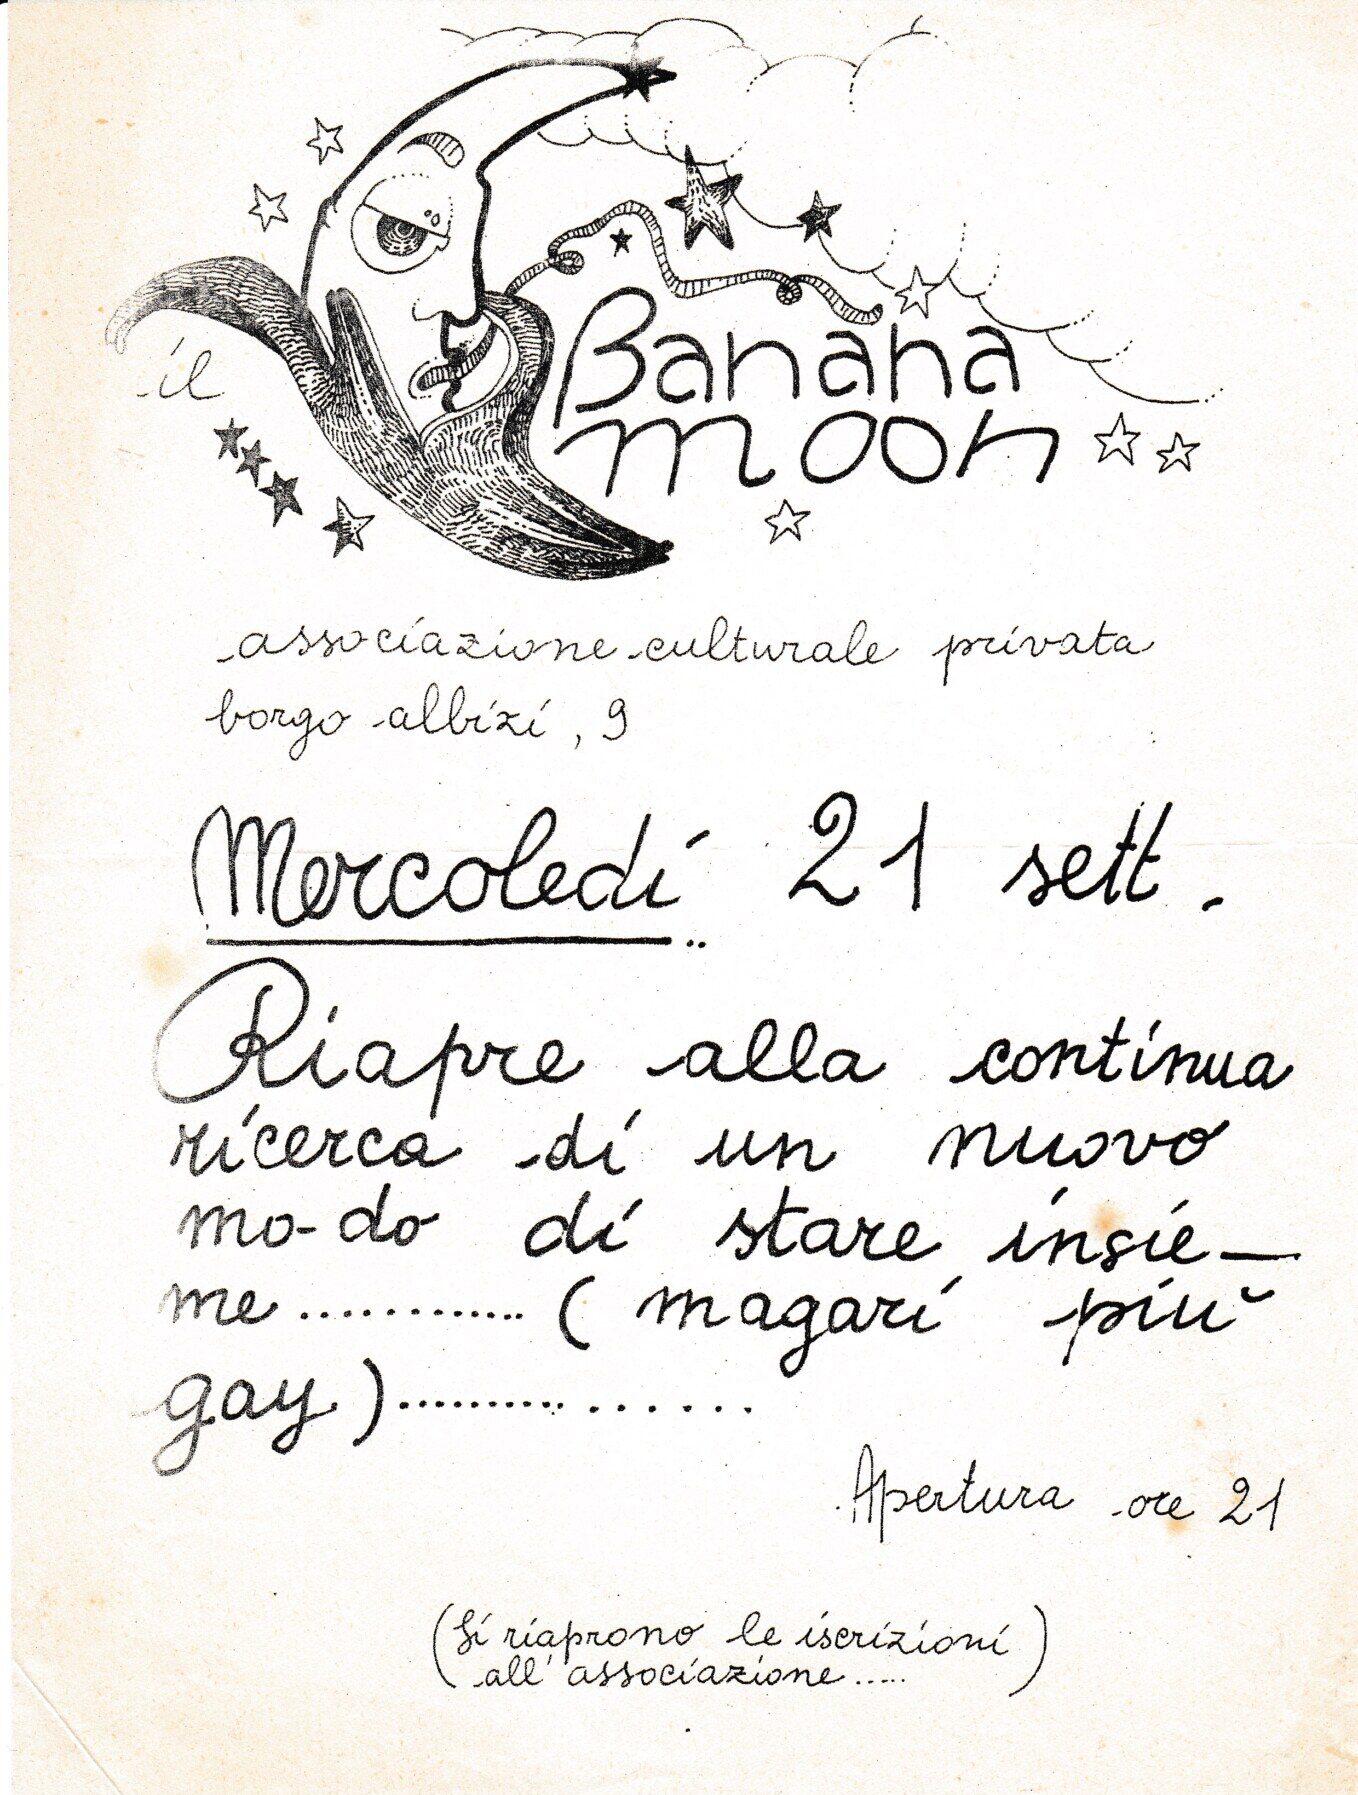 il
Banana
moon
associazione culturale privata
borgo albizi, 9
Mercoledí 21 sett.
Riapre alla continua
ricerca di un nuovo
mo-do di stare insie-
me ............. ( magari più
gay ) .................
Apertura ore 21
(Si riaprono le iscrizioni
all' associazione ..... )